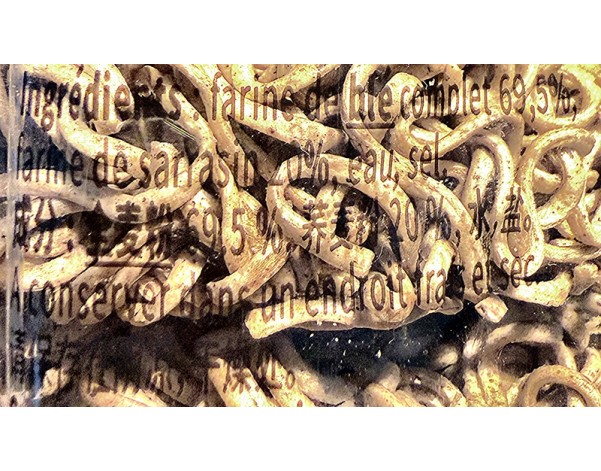 Ingrédients : farine de blé complet 69,5%,
farine de sarrasin 20%, eau, sel.
成分：全麦粉 69,5%, 荞麦粉 20%, 水, 盐。
A conserver dans un endroit frais et sec.
干燥处。